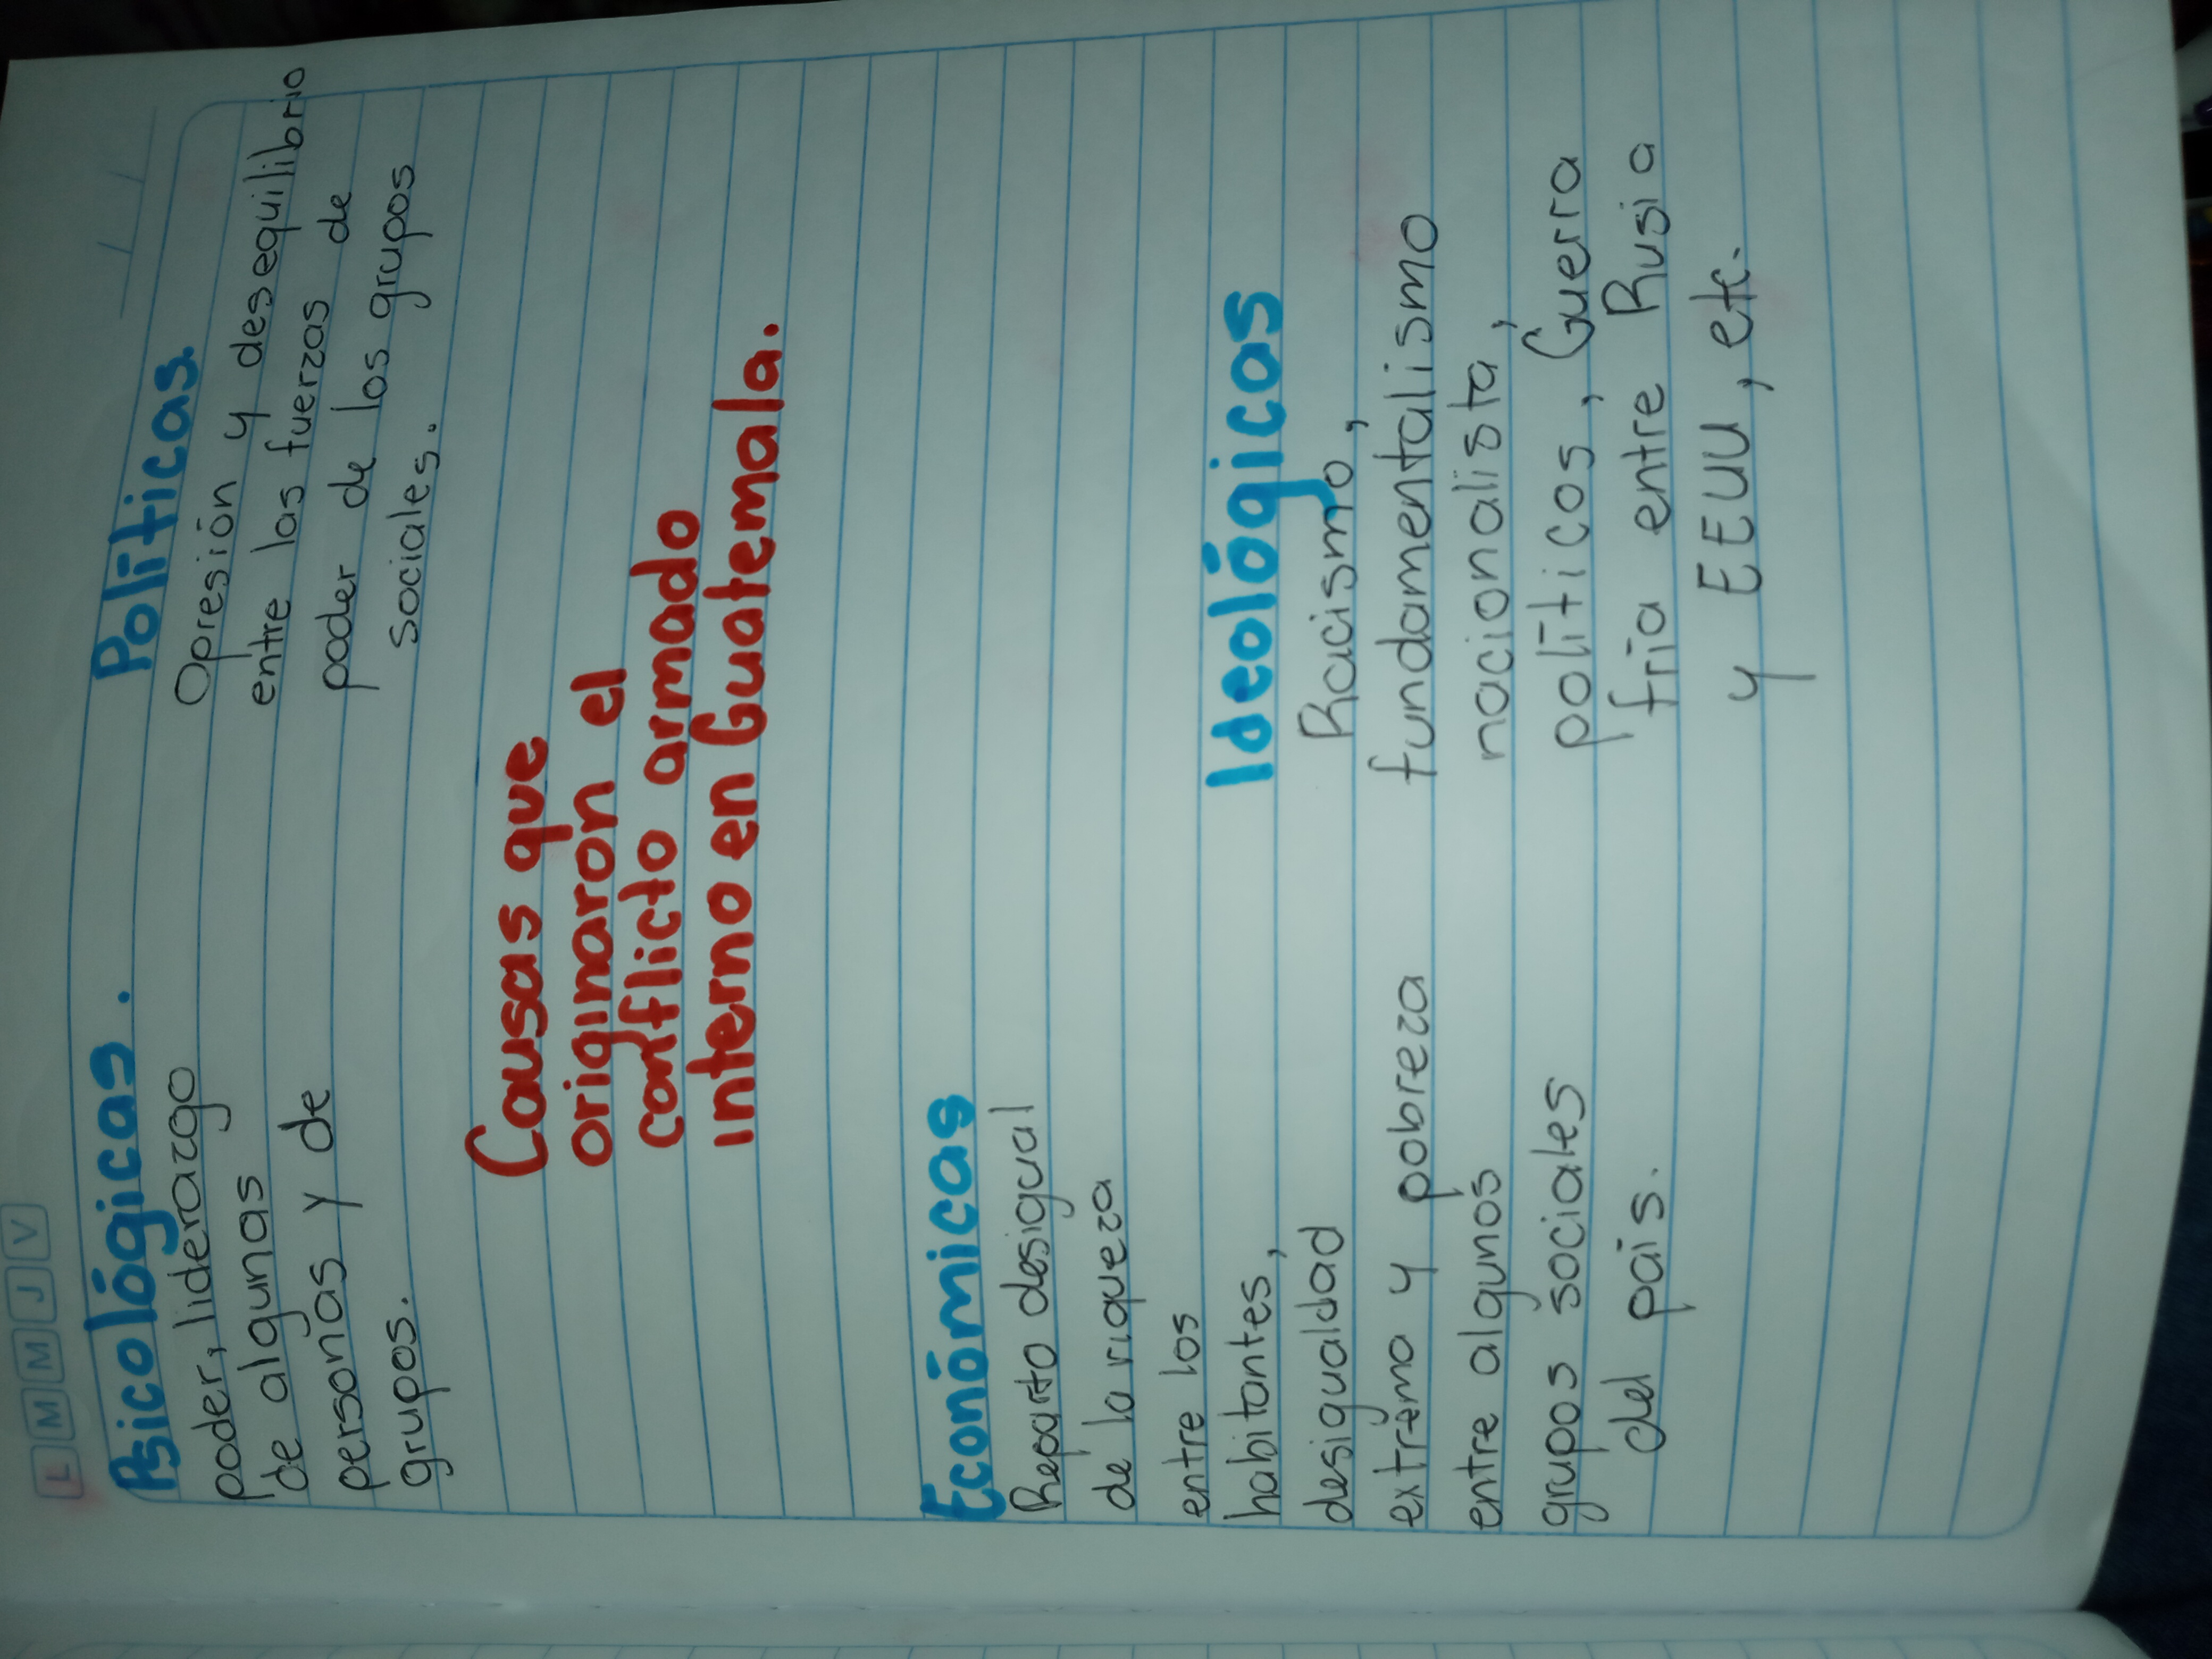 L M M J V
Psicológicas.
poder, liderazgo
de algunas
personas y de
grupos.
Políticas.
Opresión y desequilibrio
entre las fuerzas de
poder de los grupos
sociales.
Causas que
originaron el
conflicto armado
interno en Guatemala.
Económicas
Reparto desigual
de la riqueza
entre los
habitantes,
desigualdad
extrema y pobreza
entre algunos
grupos sociales
del país.
Ideológicos
Racismo,
fundamentalismo
nacionalista,
políticos, Guerra
fría entre Rusia
y EEUU, etc.